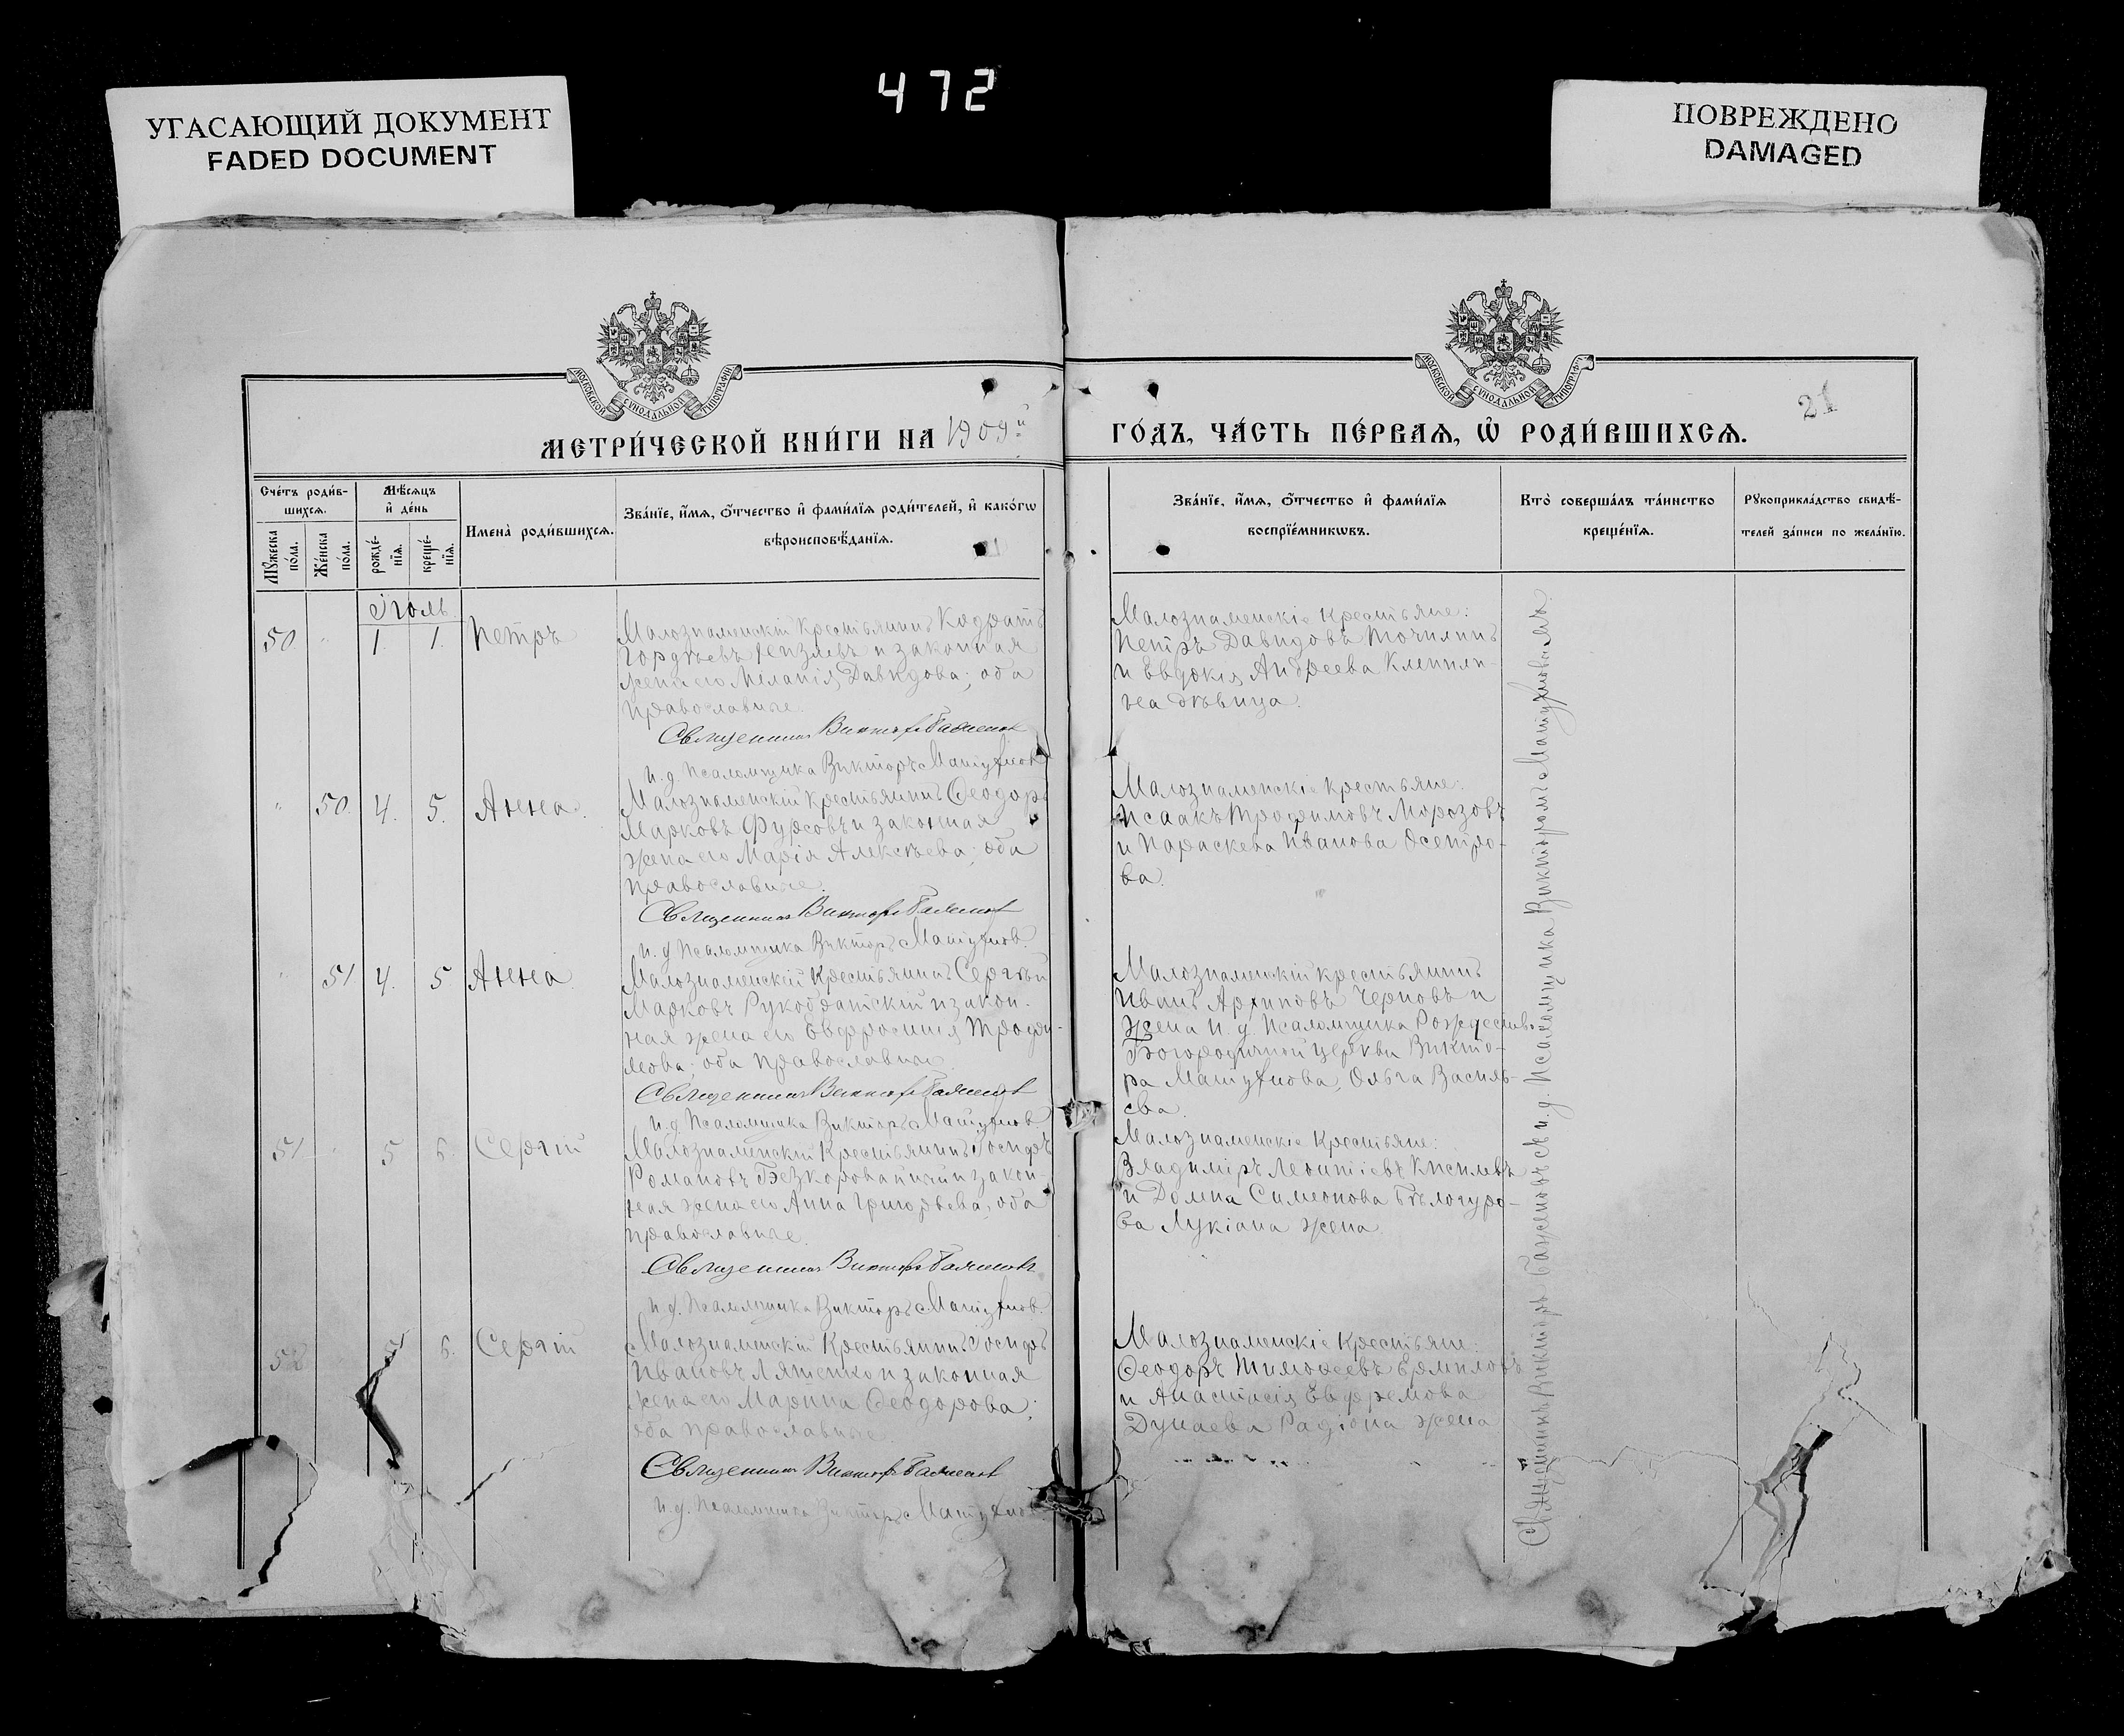 472
УГАСАЮЩИЙ ДОКУМЕНТ
FADED DOCUMENT
ПОВРЕЖДЕНО
DAMAGED
МОСКОВСКОЙ СѴНОДАЛЬНОЙ ТИПОГРАФІИ
МОСКОВСКОЙ СѴНОДАЛЬНОЙ ТИПОГРАФІИ
21
МЕТРИ́ЧЕСКОЙ КНИ́ГИ НА 1909й
ГО́ДЪ, ЧА́СТЬ ПЕ́РВАѦ, Ѡ҆ РОДИ́ВШИХСѦ.
Сче́тъ роди́в-
шихсѧ.
Мꙋ́жеска
по́ла.
Же́нска
по́ла.
Мѣ́сѧцъ
и҆ де́нь
рожде́-
нїѧ.
креще́-
нїѧ.
Имена̀ роди́вшихсѧ.
Зва́нїе, и҆́мѧ, ѻ҆́тчество и҆ фами́лїѧ роди́телей, и҆ како́гѡ
вѣроисповѣ́данїѧ.
Зва́нїе, и҆́мѧ, ѻ҆́тчество и҆ фами́лїѧ
воспрїе́мникѡвъ.
Кто̀ соверша́лъ та́инство
креще́нїѧ.
Рꙋкоприкла́дство свидѣ́-
телей за́писи по жела́нїю.
Іюль
50. " 1. 1. Петръ
Малознаменскій крестьянинъ Кодратъ
Гордѣевъ и законная
жена его Меланія Давидова; оба
православные.
Священникъ Викторъ Баженовъ
и. д. Псаломщика Викторъ Матухнов
Малознаменскіе крестьяне:
Петръ Давидовъ Точилинъ
и Евдокія Андреева
на дѣвица.
" 50. 4. 5. Анна.
Малознаменскій крестьянинъ Ѳеодоръ
Марковъ Фурсовъ и законная
жена его Марія Алексѣева; оба
православные.
Священникъ Викторъ Баженовъ
и. д. Псаломщика Викторъ Матухнов.
Малознаменскіе крестьяне:
Исаакъ Трофимовъ Морозовъ
и Параскева Иванова Осетро-
ва.
" 51 4. 5 Анна.
Малознаменскій крестьянинъ Сергѣй
Марковъ и закон-
ная жена его Евфросинія Трофи-
мова; оба православные
Священникъ Викторъ Баженовъ
и. д. Псаломщика Викторъ Матухнов.
Малознаменскій крестьянинъ
Иванъ Архиповъ Черновъ и
жена и. д. Псаломщика Рождество-
Богородичной церкви Викто-
ра Матухнова, Ольга Василь-
ева.
51 " 5 6. Сергій
Малознаменскій крестьянинъ Іосифъ
Романовъ Безкоровайный и закон-
ная жена его Анна Григорьева; оба
православные.
Священникъ Викторъ Баженовъ
и. д. Псаломщика Викторъ Матухнов.
Малознаменскіе крестьяне:
Владиміръ Леонтіевъ Киселевъ
и Домна Симеонова Бѣлогуро-
ва Лукіана жена
52 5 6. Сергій
Малознаменскій крестьянинъ Іосифъ
Ивановъ Ляшенко и законная
жена его Марина Ѳеодорова;
оба православные.
Священникъ Викторъ Баженовъ
и. д. Псаломщика Викторъ Матухнов.
Малознаменскіе крестьяне:
Ѳеодоръ Тимоѳеевъ Ермиловъ
и Анастасія Евфремова
Дунаева Радіона жена
Священникъ Викторъ Баженовъ съ и. д. Псаломщика Викторомъ Матухновымъ.